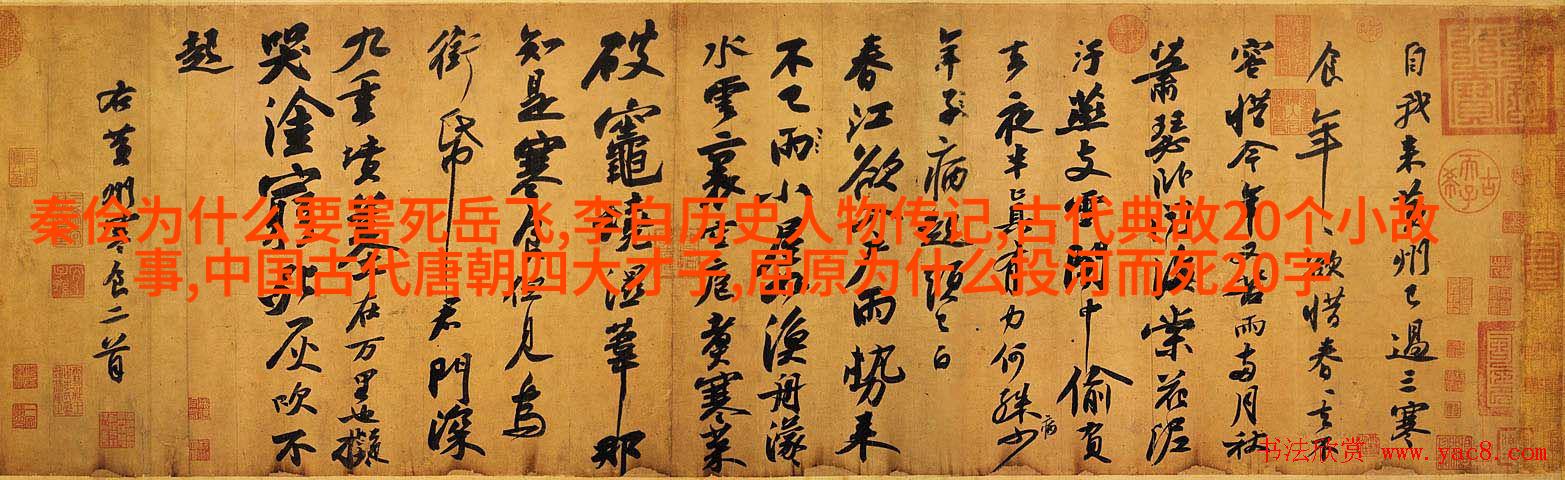 秦侩为什么要害死岳飞,李白历史人物传记,古代典故20个小故
事,中国古代唐朝四大才子,屈原为什么投河而死20字
自我来黄州已過三寒
食年〻欲惜春〻去不
容惜今年又苦雨兩月秋
蕭瑟卧聞海棠花泥
汙燕支雪闇中偷負
去夜半真有力何殊少
病
年子病起頭已白
春江欲入户雨勢来
不已雨小屋如漁舟濛
水雲裏空庖煑寒菜
破竈燒濕葦那
知是寒食但見烏
銜帋君門深
九重墳墓在万里也擬
哭塗窮死灰吹不
起
右黄州寒食二首
书法欣赏 www.yac8.com